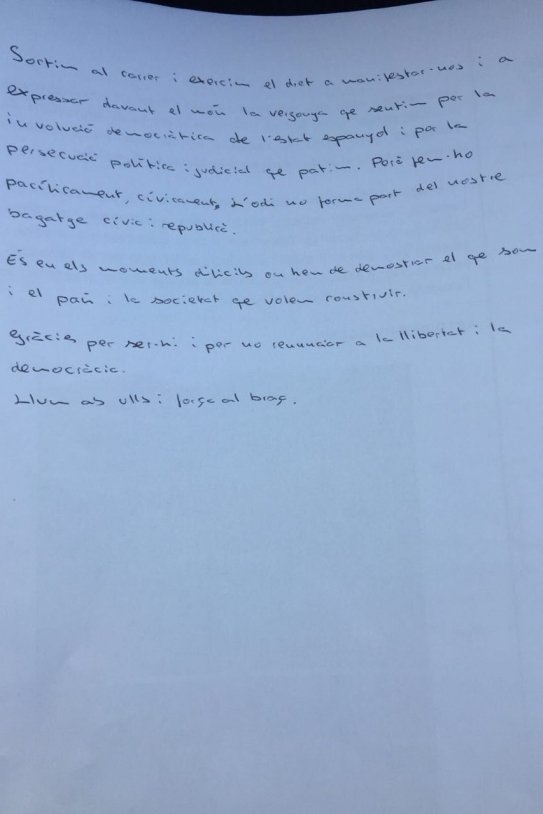 Sortim al carrer i exercim el dret a manifestar-nos i a
expressar davant el món la vergonya que sentim per la
involució democràtica de l'estat espanyol i per la
persecució política i judicial que patim. Però fem-ho
pacíficament, cívicament, L'odi no forma part del nostre
bagatge cívic i republicà.
És en els moments difícils on hem de demostrar el que som
i el país i la societat que volem construir.
Gràcies per ser-hi i per no renunciar a la llibertat i la
democràcia.
Llum als ulls i força al braç.